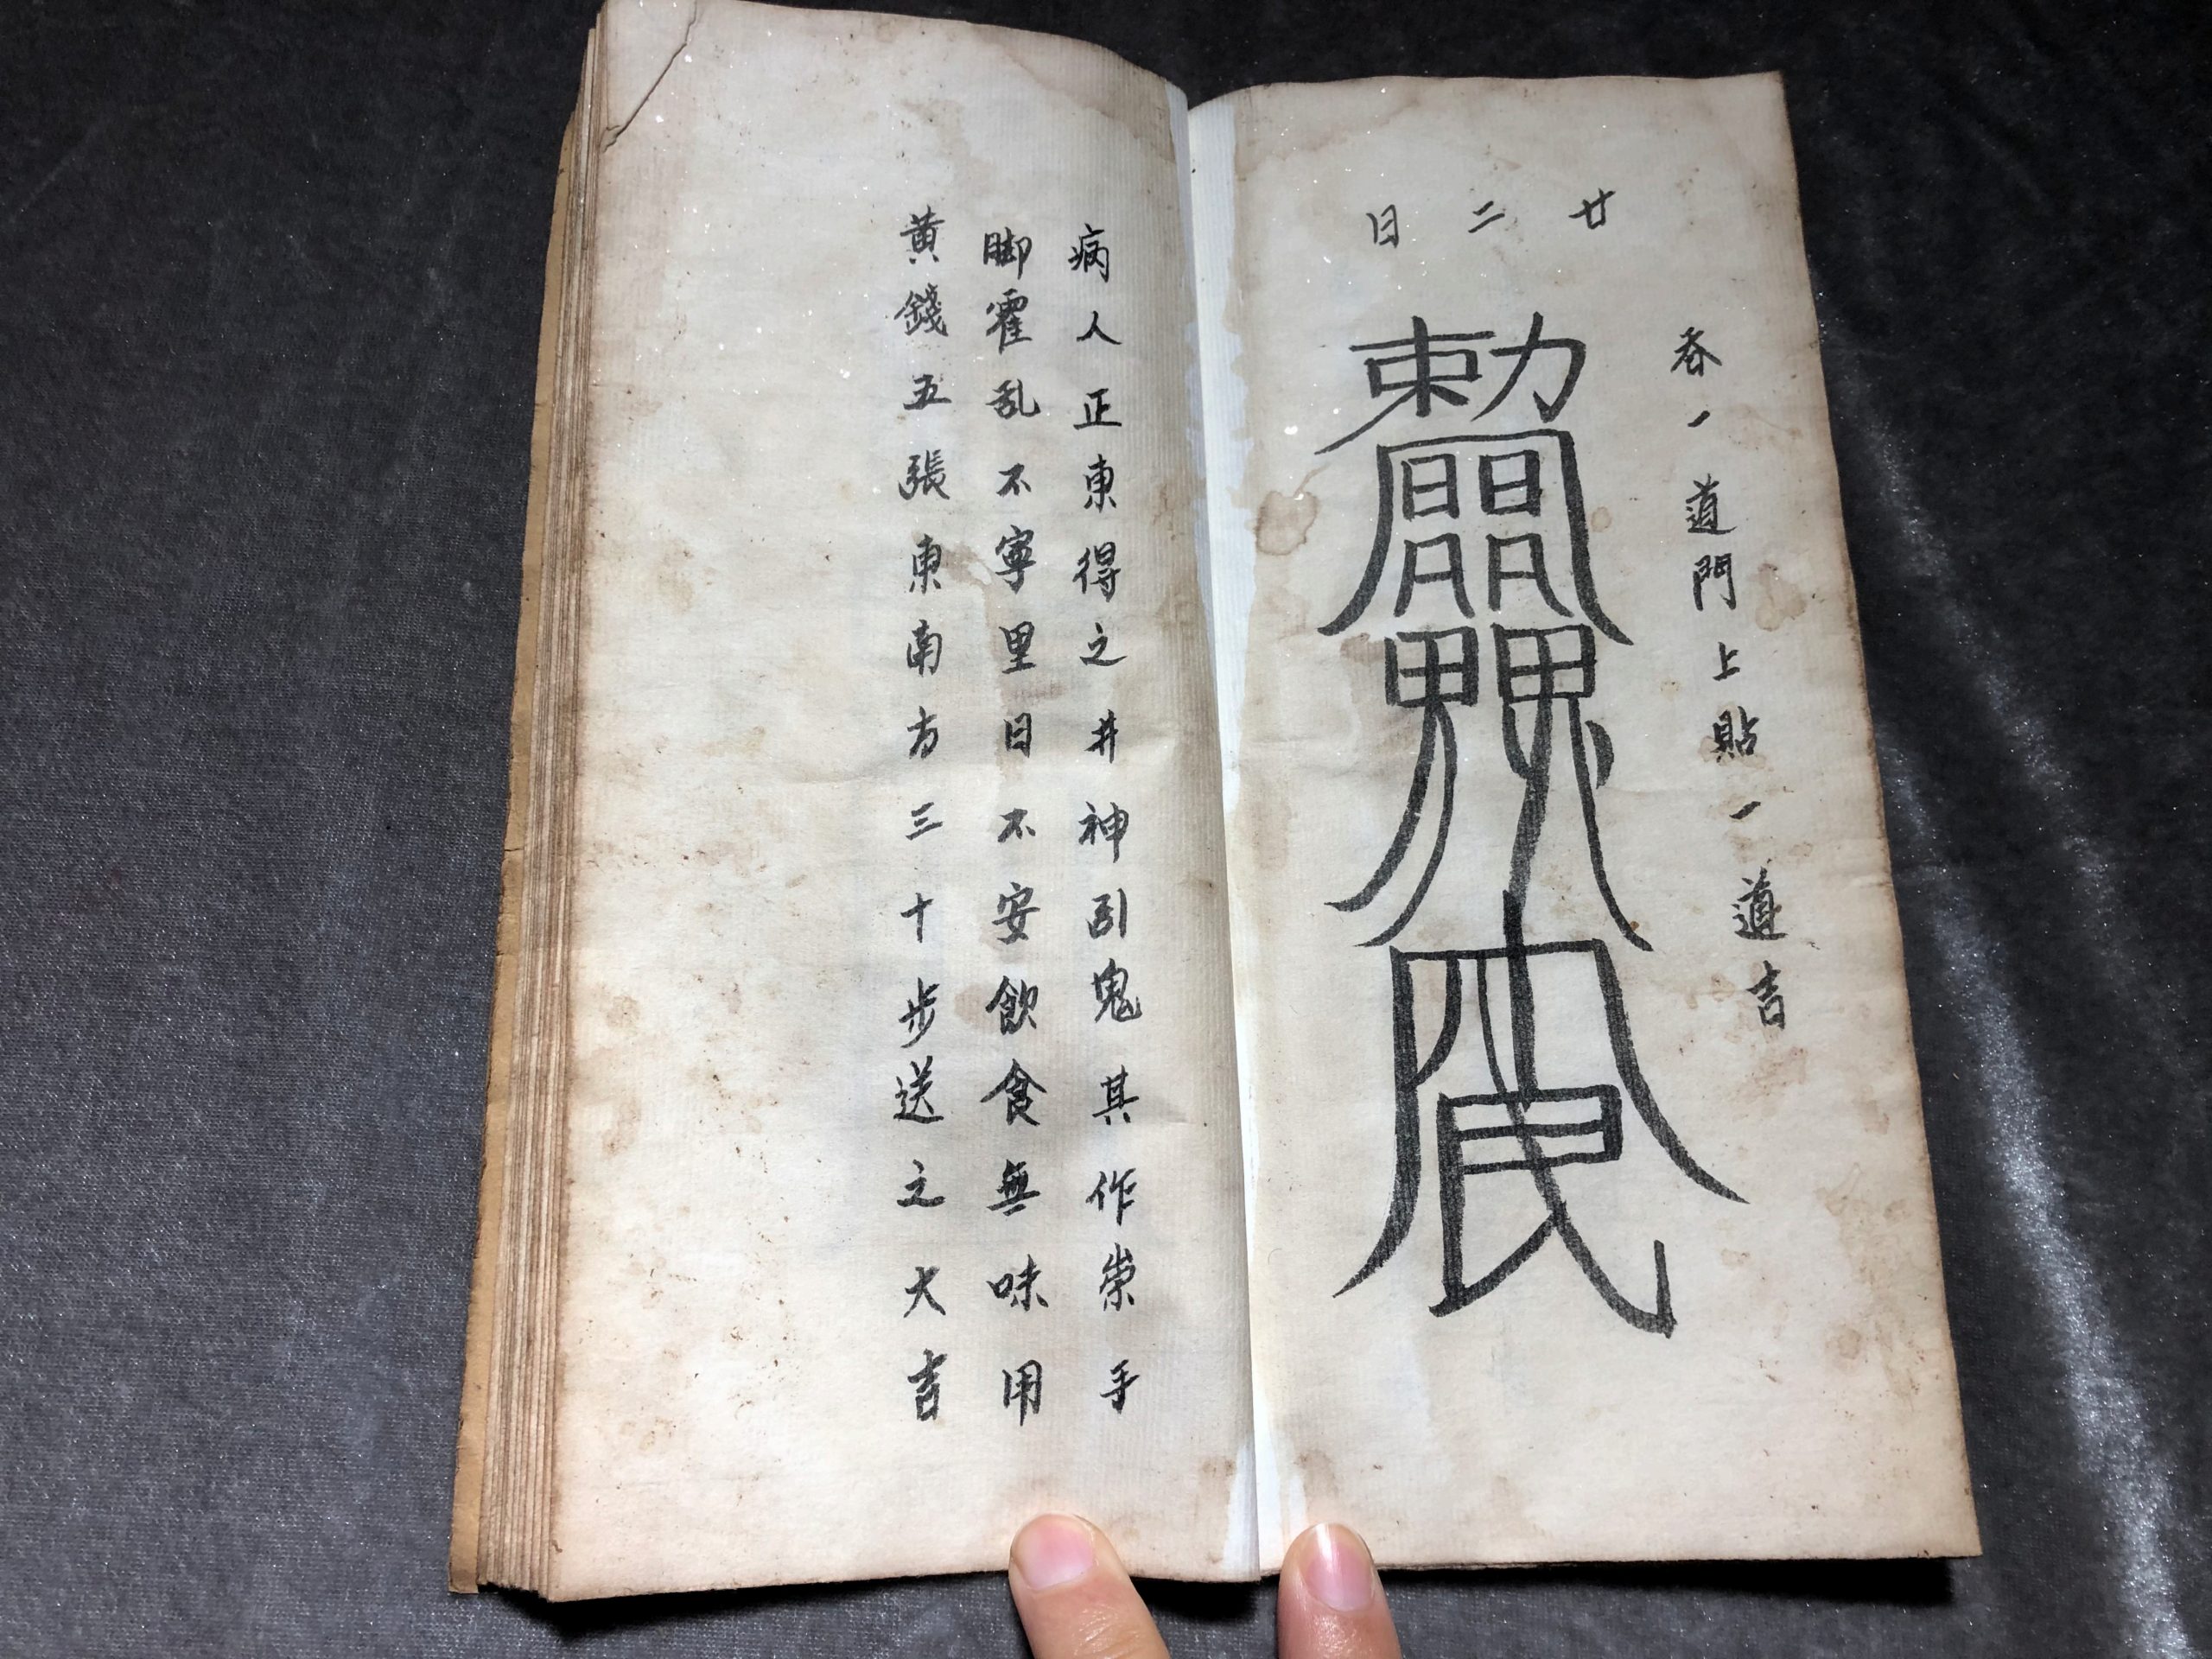 廿二日
吞一道門上貼一道吉
勅
病人正東得之井神引鬼其作祟手
脚霍乱不寧里日不安飲食無味用
黃錢五張東南方三十步送之大吉